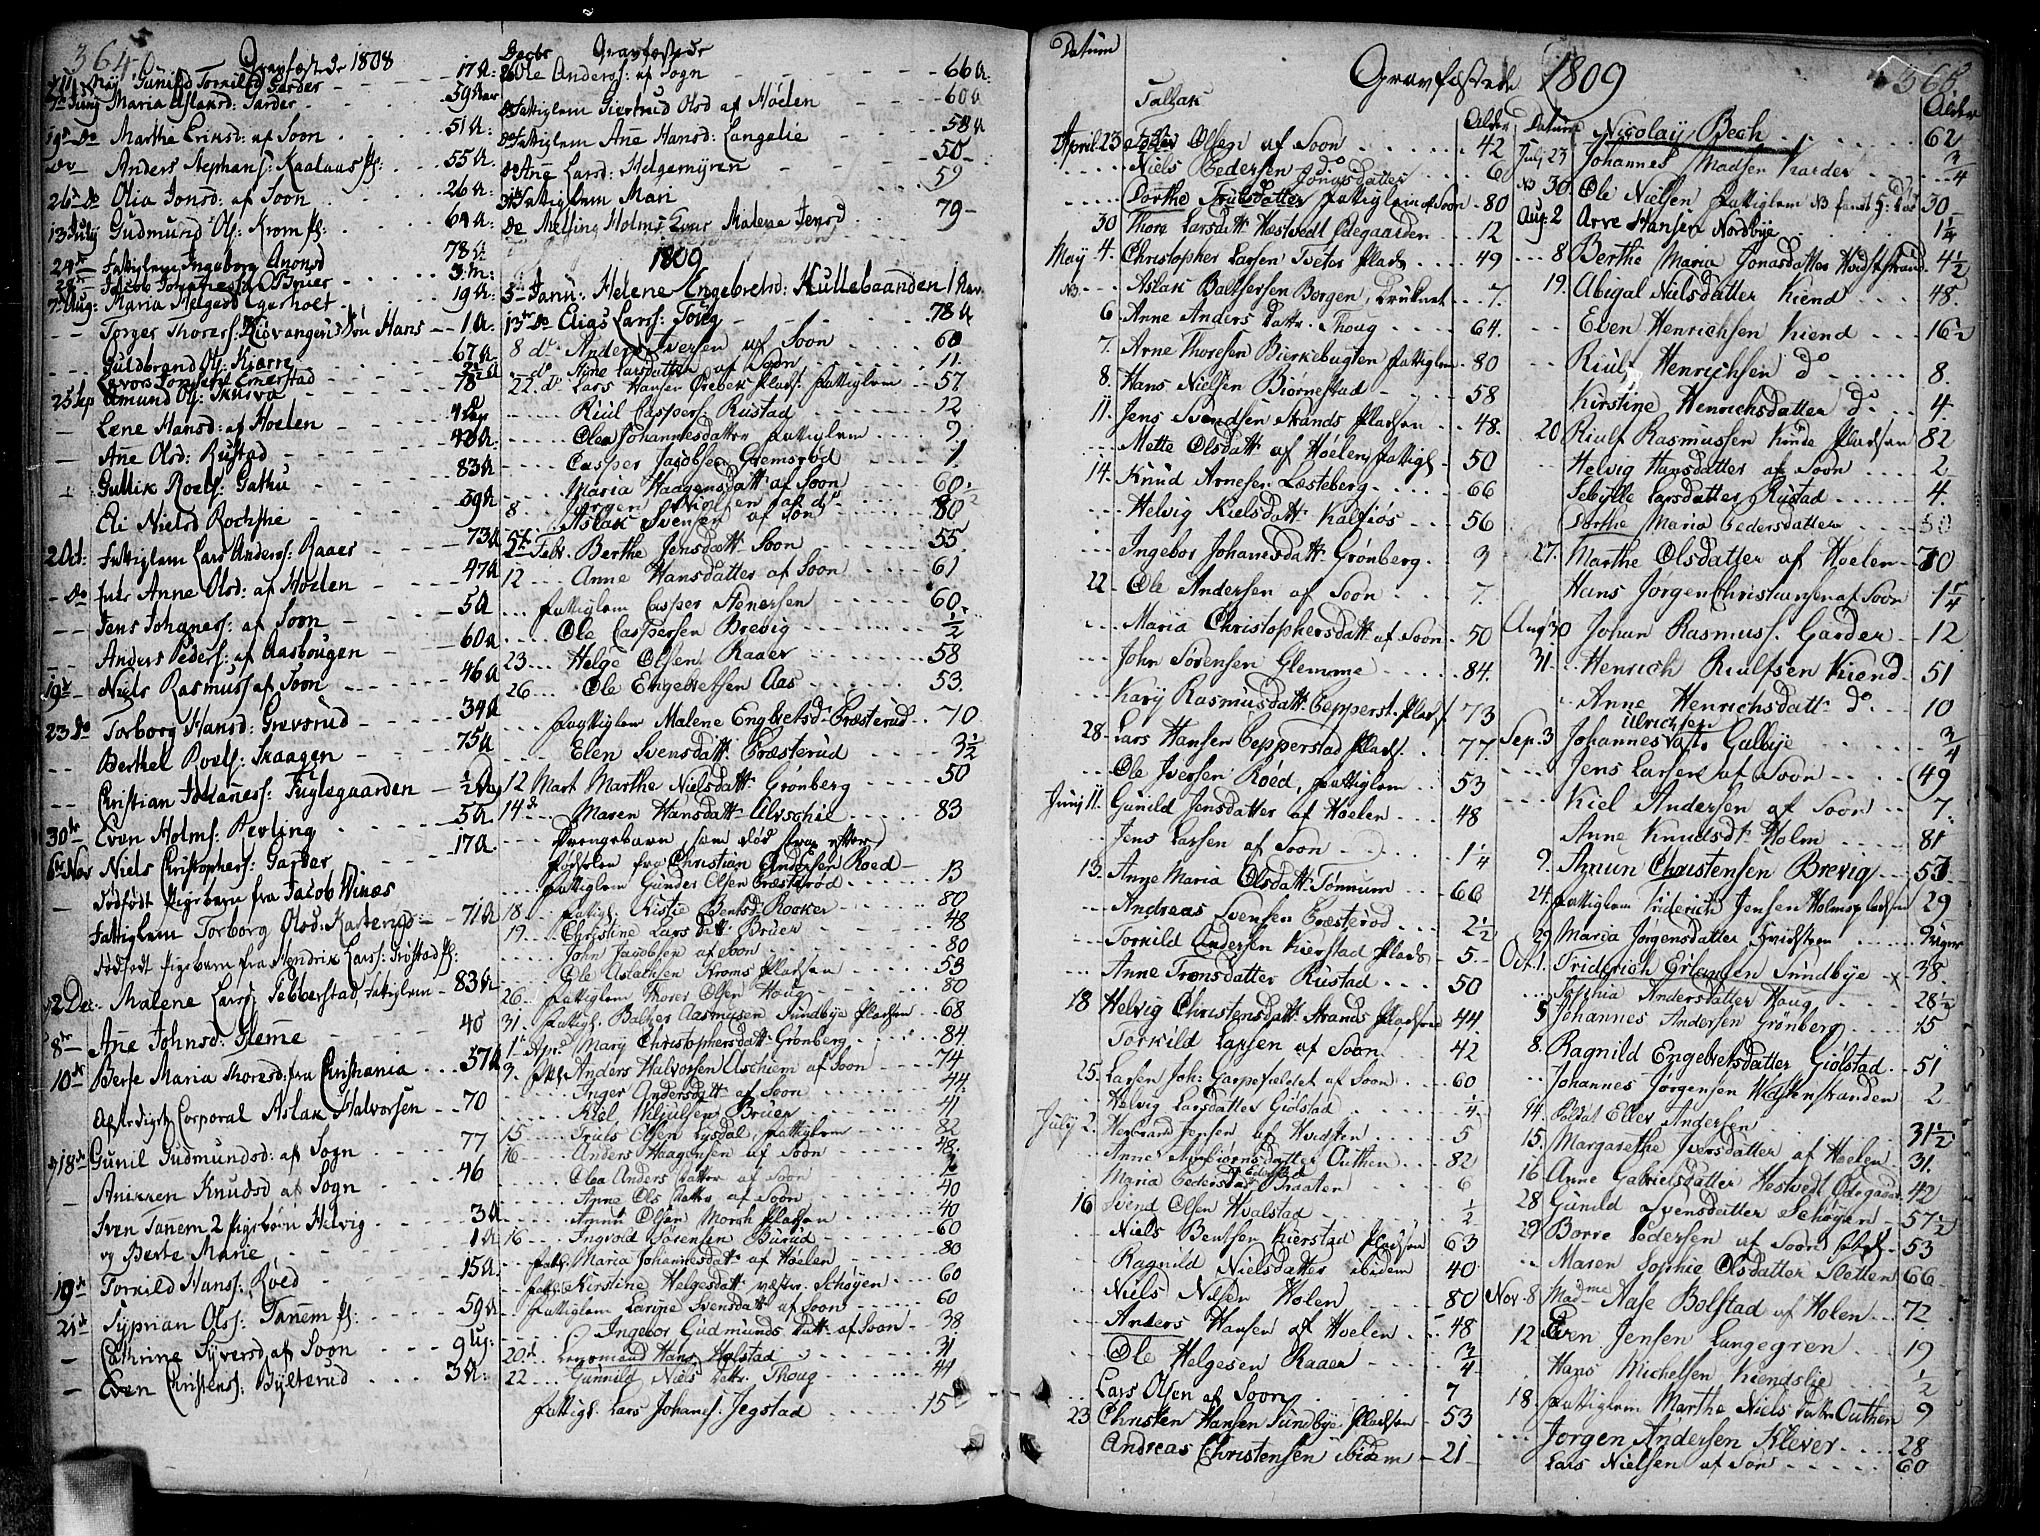 364
Gravfæstede 1808
11 May Gunild Torkilsd Garder - - - 17 A:
7de Juny Maria Aslaksd: Garder - - - 59 Aar
19de Do Marthe Eriksd: af Soon - - - 51 A:
Do Anders Stephans: Kaalaas Pl: - - 55 A:
26de Do Olia Jonsd: af Soon - - - 26 A:
13 July Gudmund Ols: Krom Pl: - - - 64 A:
24de - Fattiglem Ingeborg Anonsd - - 78 A:
28de - Jacob Johannes: - - 3 m:
7de Aug: Maria Helgesd Egerholt - - 19 A:
Torger Thores: Søn Hans - - 1 A:
Guldbrand Ols: Kjærre - - 67 A
Emerstad
25 Sep Amund Ols: Skurva - - 78
Lene Hansd: af Hoelen
Ane Olsd: Rustad - - -
Gullik Roels: Gathu - - 83 A
Eli Nielsd - - 59 A
2 Oct: Fattiglem Lars Anders: Raaer - - 73 A
- Do Anne Olsd: af Hoelen - - 47 A
- - Jens Johanes: af Soon - - 5 A
- - Anders Peders: af Aasbougen - - 60 A
19de Niels Rasmuss af Soon - - 46 A
23 do Torborg Hansd: Grevsrud - - 34 A
- - Berthel Roels: Skaagen - - 75 A
- - Christian Johanes: Fuglegaarden - - 1/2 Dag
30te Even Holms: Revling - - 5 A
6te Nov Niels Christophers: Garder - - 17 A
- Dødfødt Pigebarn fra Jacob Vinæs
Fattiglem Torborg Olsd: - - 71 A
Dødfødt Pigebarn fra Hendrik Lars: Trøstad Pl:
2 Dec: Malene Lars: Tebberstad, Fattiglem - 83 A
8de Ane Johnsd: Glemme - - 40
10de Berte Maria Thoresd: fra Christiania - - 37 A
Afskediget Corporal Aslak Halvorsen - - 70
18de Gunil Gudmundsd: af Sogn - - 77
- Anikken Knudsd af Sogn - - 46
- Sven Tanem 2 Pigebørn Helvig - - 3 A
og Berte Marie - - 1 A
19de Torkild Hans: Røed - - 15 A.
21de Syprian Ols: Tanem Pl: - - 59 A
- Cathrine Syversd af Soon - - 9 Ug:
- Even Christens: Bylterud - - 3 A:
Decbr Gravfæstede
26 Ole Anders: af Sogn - - 66 A:
do Fattiglem Giertrud Olsd af Hoelen - - 60 A
do Fattiglem Ane Hansd: Langelie - - 58 A
do Ane Larsd: Helgemyren - - 50 -
Fattiglem Mari - - 59
do Mølling Holms Malene Jensd - - 79 -
1809
5te Janu: Helene Engebretsd: Kullebaanden 1 Aar
13de Do Elias Lars: Toug - - 78 A
8 do Anders Iversen af Soon - - 60
- do Anne Larsdatter af Soon - - 11
22. do Lars Hansen Plads: Fattiglem - - 57
Riul Caspers: Rustad - - 12
Olea Johannesdatter Fattiglem - - 9
Casper Jacobsen Gremsrød - - 1
Maria Haagensdatt af Soon - - 60
8 Jørgen af do
Aslak Svensen af Son - - 80
5te Febr. Berthe Jensdatt Soon - - 55
12 - - Anne Hansdatter af Soon - - 61
- - Fattiglem Casper Stenersen - - 60
Ole Caspersen Brevig - - 1/2
23 - - Helge Olsen Raaer - - 58
26 - - Ole Engebretsen Aas - - 53.
Fattiglem Malene Engbretsd. Træsterud - 70
Elen Svensdatt. Træsterud - - 3 1/2
12 Mart Marthe Nielsdatt. Grønberg - - 50
14 d Maren Hansdatt. - - 83
Drengebarn som død strax efter
Fødselen fra Christian Andersen Roed -
Fattiglem Gunder Olsen Træsterød - - 13
18 - - Fattigl: Kistie Bentsd. Rooker - - 80
19. - - Christine Lars Datt Bruer - - 48
John Jacobsen af Soon - - 80
Ole Aslachsen Kroms Pladsen - - 53
26 - - Fattiglem Thorer Olsen Houg - - 80
31. - Fattigl. Balzer Aasmusen Sundbye Pladsen - - 68
1te Apr. Mary Christophersdatt. Grønberg - - 84.
3. Fttl Anders Halvorsen Aschiem af Soon - - 74
Inger Andersdatt af Soon - - 44.
Kiel Bruer - - 41
15 - - Truls Olsen Lysdal, Fattiglem - - 82
16 - - Anders Haagensen af Soon - - 48.
Olea Anders Datter af Soon - -
Anne Ols Datter af Soon - - 40
Amund Olsen Morch Pladsen - - 40
16 - Ingvold Sørensen Burud - - 60
Fattig. Maria Johannesdatt. af Hoelen - - 80
Fattigl Kirstine Helgesdatt. vestre Schøyen - - 60
Fattiglem Larine Svensdatt af Soon - - 60
- Ingebor Gudmunds Datt: af Soon - - 38
20. d Hans: Holstad - - 31
22. - - Gunnild Niels Datr: Thoug - - 44
Fattigl: Lars Johanes: Jegstad - - 15
365
Gravfæstede 1809
Datum
Falsak
Alder
April 23 Peder Olsen af Soon - - 42
Niels Pedersen do - - 6
Jonasdatter
Dorthe Trulsdatter Fattiglem af Soon - 80
30 Thore Larsdatt Hæstvedt Ødegaarden - - 12
May 4. Christopher Larsen Tveter Plads - - 49
NB Aslak Baltsersen Borgen, Druknet - - 7.
6 Anne Anders Dattr. Thoug - - 64.
7. Arne Thoresen Bierkebugten Fattiglem - - 80
8. Hans Nielsen Biørnestad - - 58
11. Jens Svendsen Strands Pladsen - - 48.
Mette Olsdatt af Hoelen Fattigl - - 50
14. Knud Arnesen Læsteberg - - 66
Helvig Kielsdatt Kalfiøs - - 56
Ingebor Johanesdatt Grønberg - - 3
22 - Ole Andersen af Soon - - 7.
Maria Christophersdatt af Soon - - 50
John Sørensen Glemme - - 84.
Kary Rasmusdatt Tepperst. Plads - 73
28 - Lars Hansen Tepperstad Plads. - 77.
Ole Iversen Røed, Fattiglem - - 53
Juny 11. Gunild Jensdatter af Hoelen - - 48
Jens Larsen af Soon - - 1 1/4
13. Anne Maria Olsdatt: Tønnum - - 66
Andreas Svensen Træsterød - - 2 1/2
Torkild Andersen Kierstad Plads - - 5 -
Anne Tronsdatter Rustad - - 50
18 Helvig Christensdatt: Strands Pladsen 44.
Torkild Larsen af Soon - - 42
25. Larsen Joh: Garpefieldet af Soon - - 60
Helvig Larsdatter Giølstad - - 1/4
July 2. Herbrand Jensen af Hvidsten - - 5
Anne Outhen - - 82
Maria Pedersdatt Braaten - - 6
16 Svend Olsen Hvalstad - - 1/2
Niels Bentsen Kierstad Pladsen - - 63
Ragnild Nielsdatter ibidem - - 40
Niels Nilsen Holen - - 80
Anders Hansen af Hoelen - - 48
Ole Helgesen Raaer - - 3/4
Lars Olsen af Soon - - 7
23 Christen Hansen Sundbye Pladsen - 53
Andreas Christensen ibidem - 21 -
Datum
Alder
Nicolay Bech - - 62
July 23 Johannes Madsen Garder - - 3/4
NB 30. Ole Nielsen Fattiglem NB 30
Aug: 2 Arve Hansen Nordbye - - 1 1/4
8 Berthe Maria Jonasdatter Hvidst: Strand 4 1/2
19. Abigal Nielsdatter Kiend - - 48.
Even Henrichsen Kiend - - 16 1/2
Riulf Henrichsen do - - 8.
Kirstine Henrichsdatter do - - 4.
20 Riulf Rasmussen Kinde Pladsen 82
Helvig Hansdatter af Soon - - 2
Sebylle Larsdatter Rustad - - 4.
Dorthe Maria Pedersdatter - - 50
27. Marthe Olsdatter af Hoelen - 70
Hans Jørgen Christiansen af Soon 1 1/4
Aug 30 Johan Rasmuss: Garder - - 12
31. Henrich Riulfsen Kiend - 51
Anne Henrichsdatt do - - 10
Ulrichsen
Sep. 3 Johannes Gulbye - - 3/4
Jens Larsen af Soon - - 49
Kiel Andersen af Soon - - 7.
Anne Knudsdt. Holm - - 81
9. Amun Christensen Brevig - - 53
24. Fattiglem Friderich Jensen Holms Pladsen 29
29. Maria Jørgensdatter Hvidsteen - - 9 uger
Oct. 1. Friderich Erlansen Sundbye - x 38.
Sophia Andersdatter Houg - - 28 1/2
5 Johannes Andersen Grønberg - - 15
8. Ragnild Engebretsdatter Giølstad - 51
Johannes Jørgensen Hvidstenstranden 2
14. Soldat Eller Andersen - - 31 1/2
15. Margarethe Iversdatter af Hoelen - 31.
16 Anne Gabrielsdatter Hestvedt Ødegaard - 42
28 Gunild Svensdatter Schøyen - 57 1/2
29 Borre Pedersen af Soon Fattigl - 53
Maren Sophie Olsdatter Sletten - 66
Nov. 8 Madme Aase Bolstad af Holen - 72
12. Even Jensen Langegren - - 19
Hans Michelsen Kiendslie - - 1/2
18. Fattiglem Marthe Niels Datter Outhen 9
Jørgen Andersen Klever - - 28
Lars Nielsen af Son - - 60